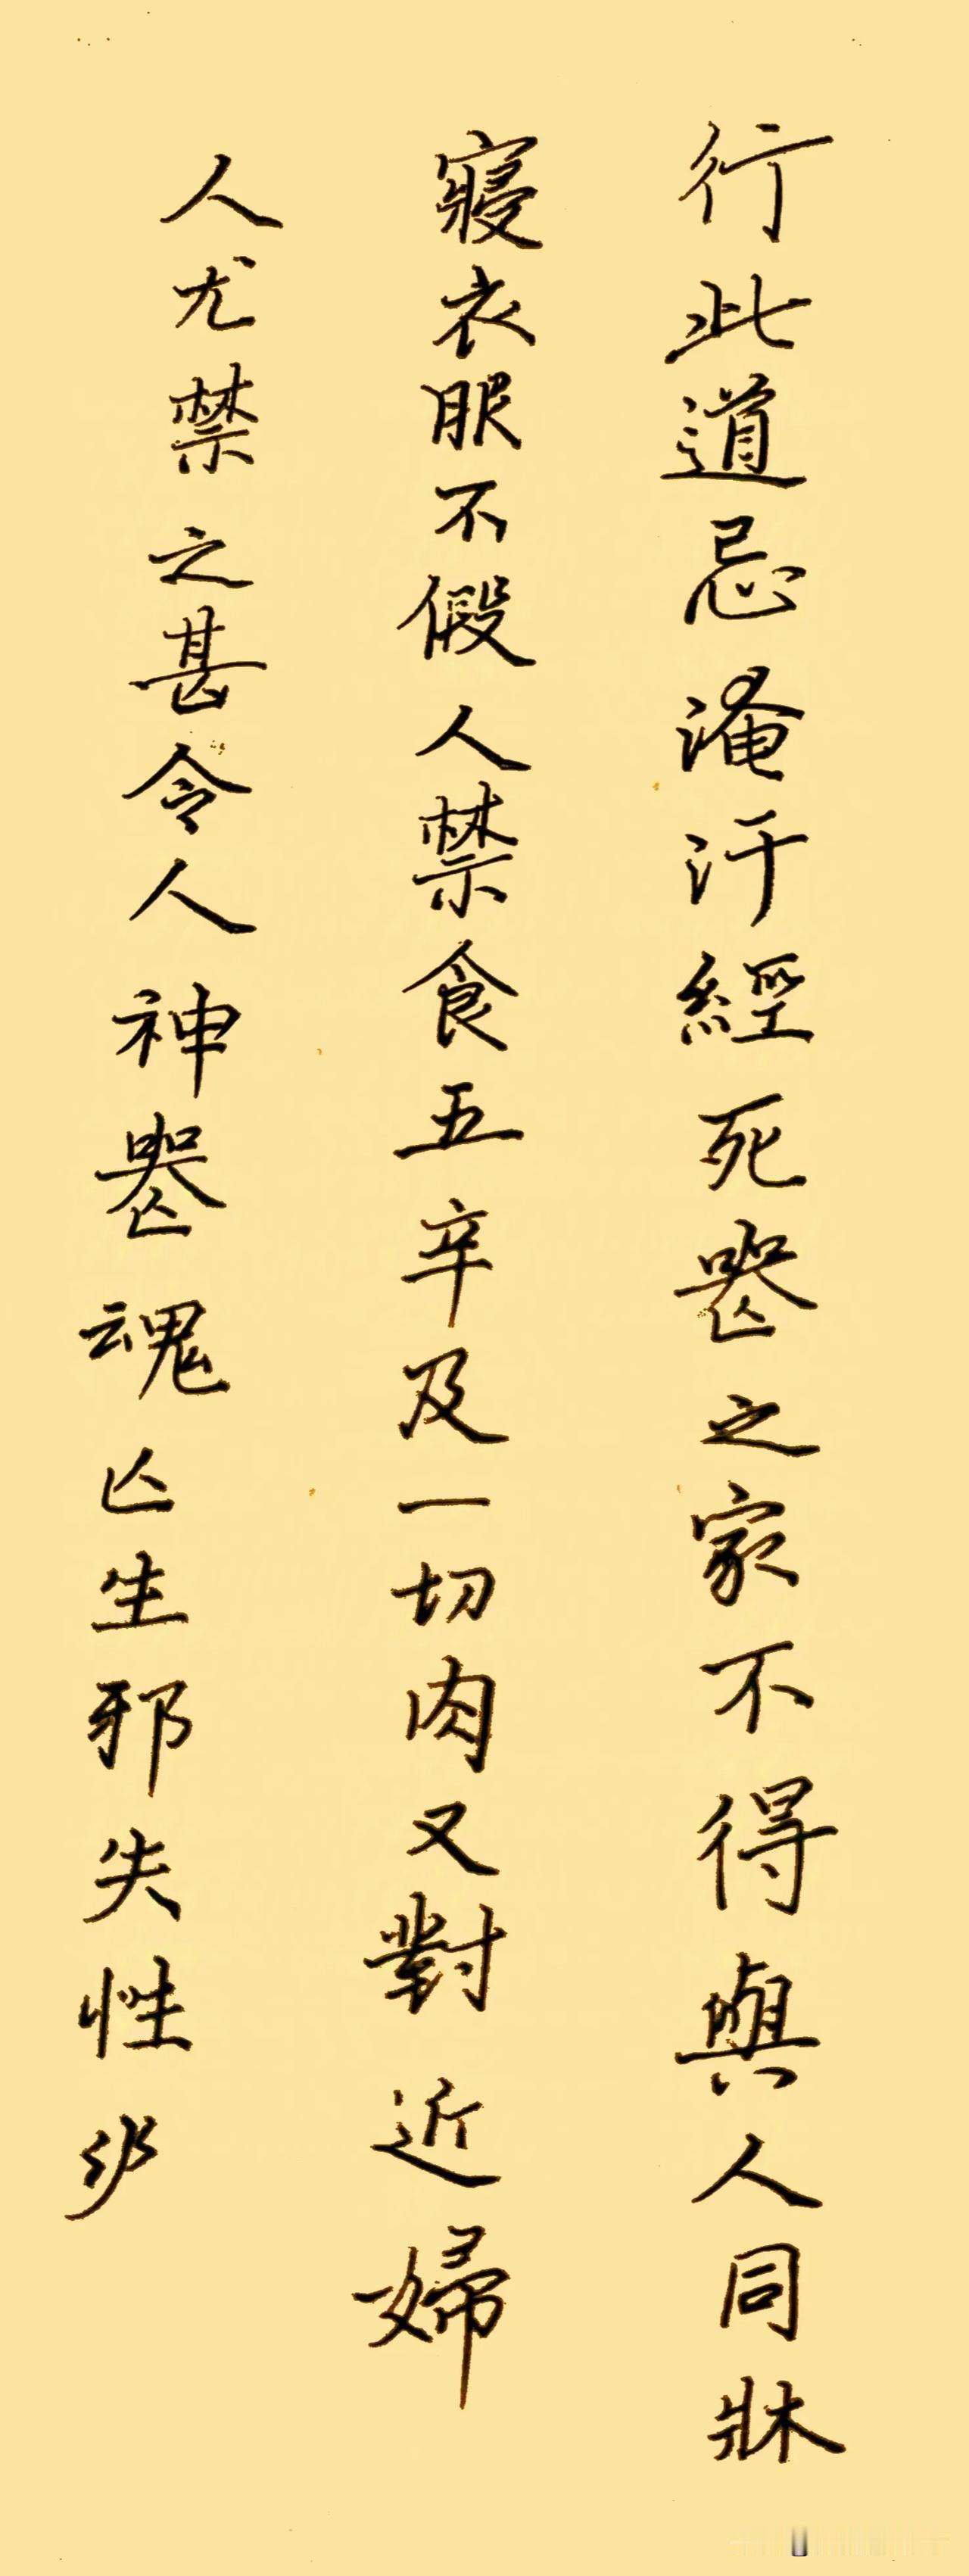 行此道忌淹汙經死喪之家不得與人同牀
寢衣服不假人禁食五辛及一切肉又對近婦
人尤禁之甚令人神喪魂亡生邪失性